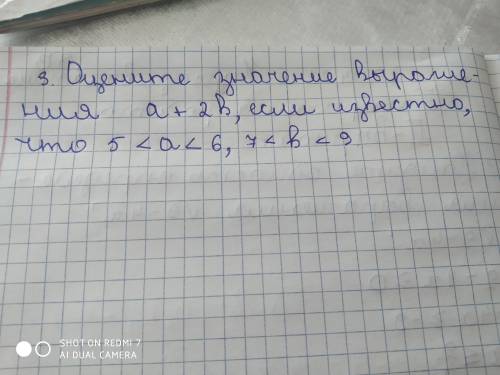 3. Оцените значение выраже-
ния a + 2b, если известно,
что 5 < a < 6, 7 < b < 9
SHOT ON REDMI 7
AI DUAL CAMERA